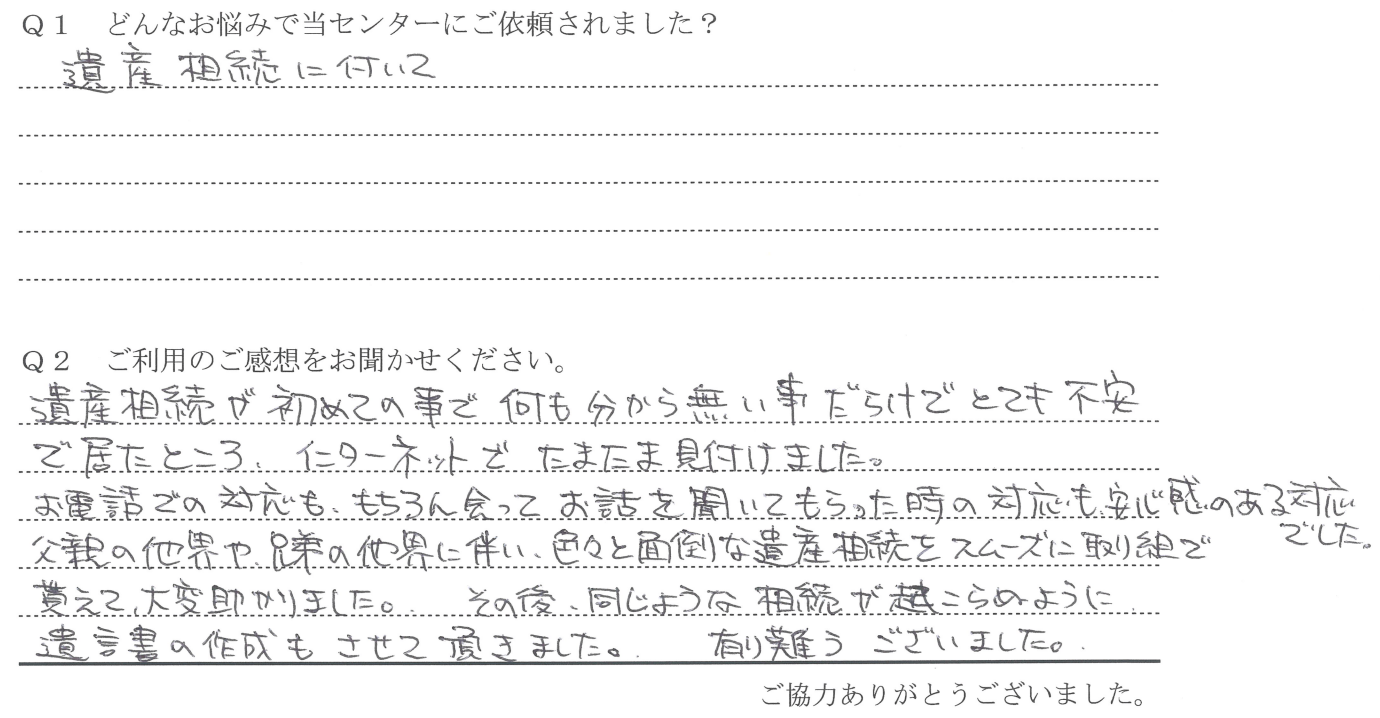 Ｑ１　どんなお悩みで当センターにご依頼されました？
遺産相続に付いて
Ｑ２　ご利用のご感想をお聞かせください。
遺産相続が初めての事で何も分から無い事だらけでとても不安
で居たところ、インターネットでたまたま見付けました。
お電話での対応も、もちろん会ってお話を聞いてもらった時の対応も、安心感のある対応
でした。
父親の他界や、兄弟の他界に伴い、色々と面倒な遺産相続をスムーズに取り組で
貰えて、大変助かりました。　その後、同じような相続が起こらぬように
遺言書の作成もさせて頂きました。　有り難うございました。
ご協力ありがとうございました。